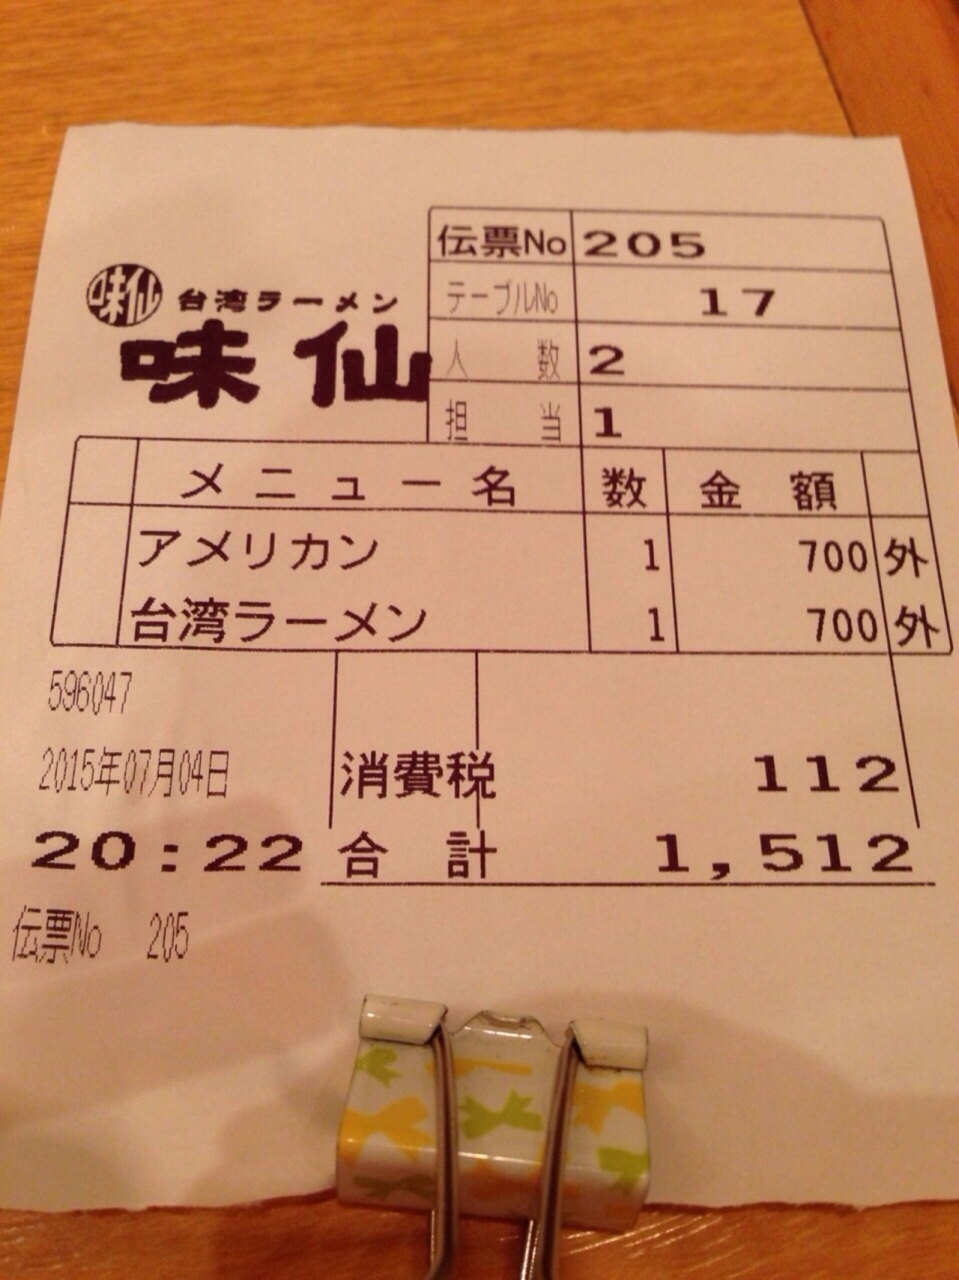 味仙
台湾ラーメン
味仙
伝票No 205
テーブルNo 17
人数 2
担当 1
メニュー名 数 金額
アメリカン 1 700 外
台湾ラーメン 1 700 外
596047
2015年07月04日
消費税 112
20:22
合計 1,512
伝票No 205